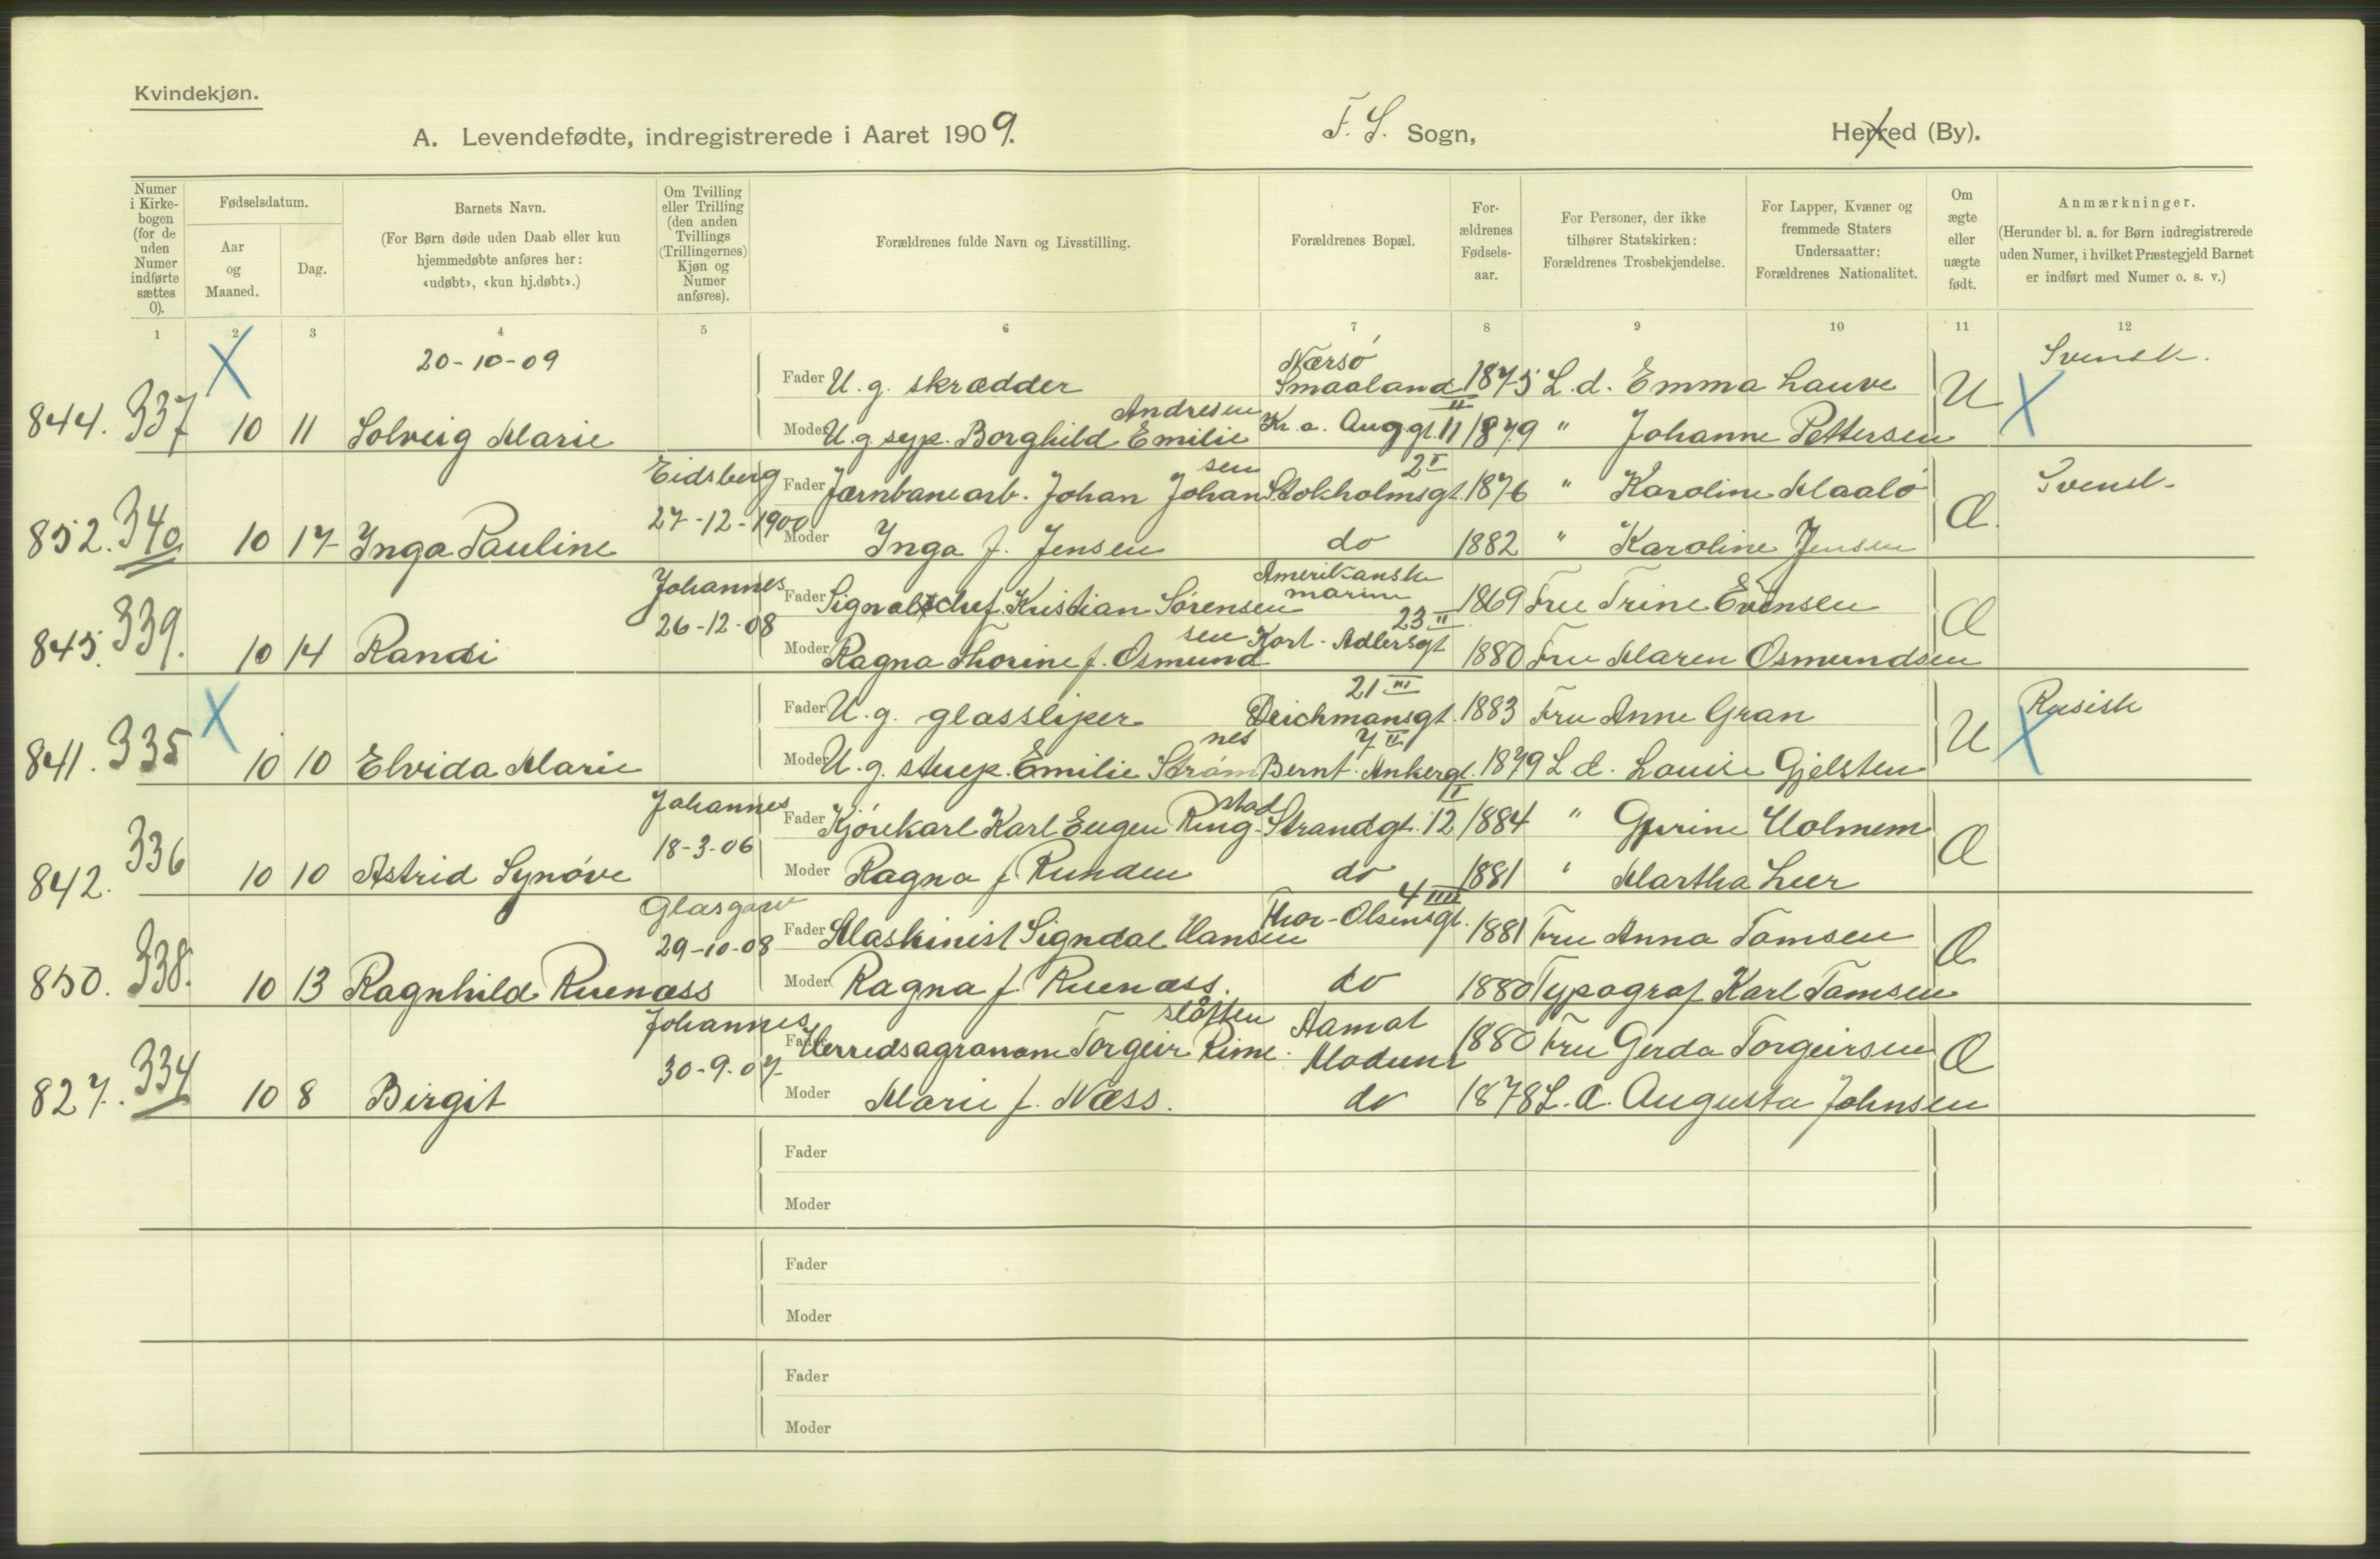 Kvindekjøn.
A. Levendefødte, indregistrerede i Aaret 1909. F. S. Sogn, Herred (By).
Numer i Kirkebogen (for de uden Numer indførte sættes 0).
Fødselsdatum.
Aar og Maaned.
Dag.
Barnets Navn.
(For Børn døde uden Daab eller kun hjemmedøbte anføres her: «udøbt», «kun hj.døbt».)
Om Tvilling eller Trilling (den anden Tvillings (Trillingernes) Kjøn og Numer anføres).
Forældrenes fulde Navn og Livsstilling.
Forældrenes Bopæl.
Forældrenes Fødselsaar.
For Personer, der ikke tilhører Statskirken: Forældrenes Trosbekjendelse.
For Lapper, Kvæner og fremmede Staters Undersaatter: Forældrenes Nationalitet.
Om ægte eller uægte født.
Anmærkninger.
(Herunder bl. a. for Børn indregistrerede uden Numer, i hvilket Præstegjeld Barnet er indført med Numer o. s. v.)
1 2 3 4 5 6 7 8 9 10 11 12
20-10-09 Nærsö Svensk.
Fader U. g. skrædder Smaaland 1875 L. d. Emma Lauve U
844. 337 10 11 Solveig Marie Moder U. g. syp. Borghild Emilie Andresen Kr. a. Aug.gt. 11 II 1879 " Johanne Pettersen
Eidsberg Fader Jærnbanearb. Johan Johansen Stokholmsgt. 2 I 1876 " Karoline Maalö Svensk
852. 340 10 17 Inga Pauline 27-12-1900 Moder Inga f. Jensen do 1882 " Karoline Jensen Æ
Johannes Fader Signalchef Kristian Sörensen Amerikanske marine 1869 Fru Trine Evensen Æ
845. 339. 10 14 Randi 26-12-08 Moder Ragna Thorine f. Osmundsen Kort-Adlersgt 23 II 1880 Fru Maren Osmundsen
Fader U. g. glassliper Deichmansgt. 21 III 1883 Fru Anne Gran U Rusisk
841. 335 10 10 Elvida Marie Moder U. g. Emilie Strömnes Bernt Ankergt. 7 II 1879 L. d. Louise Gjelsten
Johannes Fader Kjörekarl Karl Eugen Ringstad Strandgt. 12 I 1884 " Holmem Æ
842. 336 10 10 Astrid Synöve 18-3-06 Moder Ragna f. Runden do 1881 " Martha Leer
Glasgow Fader Maskinist Signdal Hansen Thor-Olsensgt. 4 IIII 1881 Fru Anna Tomsen Æ
850. 338. 10 13 Ragnhild Ruenæss 29-10-08 Moder Ragna f. Ruenæss. do 1880 Typograf Karl Tomsen
Johannes Fader Herredsagronom Torgeir Rimeslåtten Aamot Modum 1880 Fru Gerda Torgeirsen Æ
827. 334 10 8 Birgit 30-9-07 Moder Marie f. Næss. do 1878 L. d. Augusta Johnsen
Fader
Moder
Fader
Moder
Fader
Moder